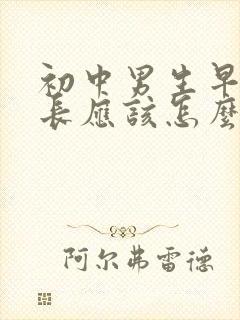 初中男生早
长应该怎麼
阿尔弗雷德